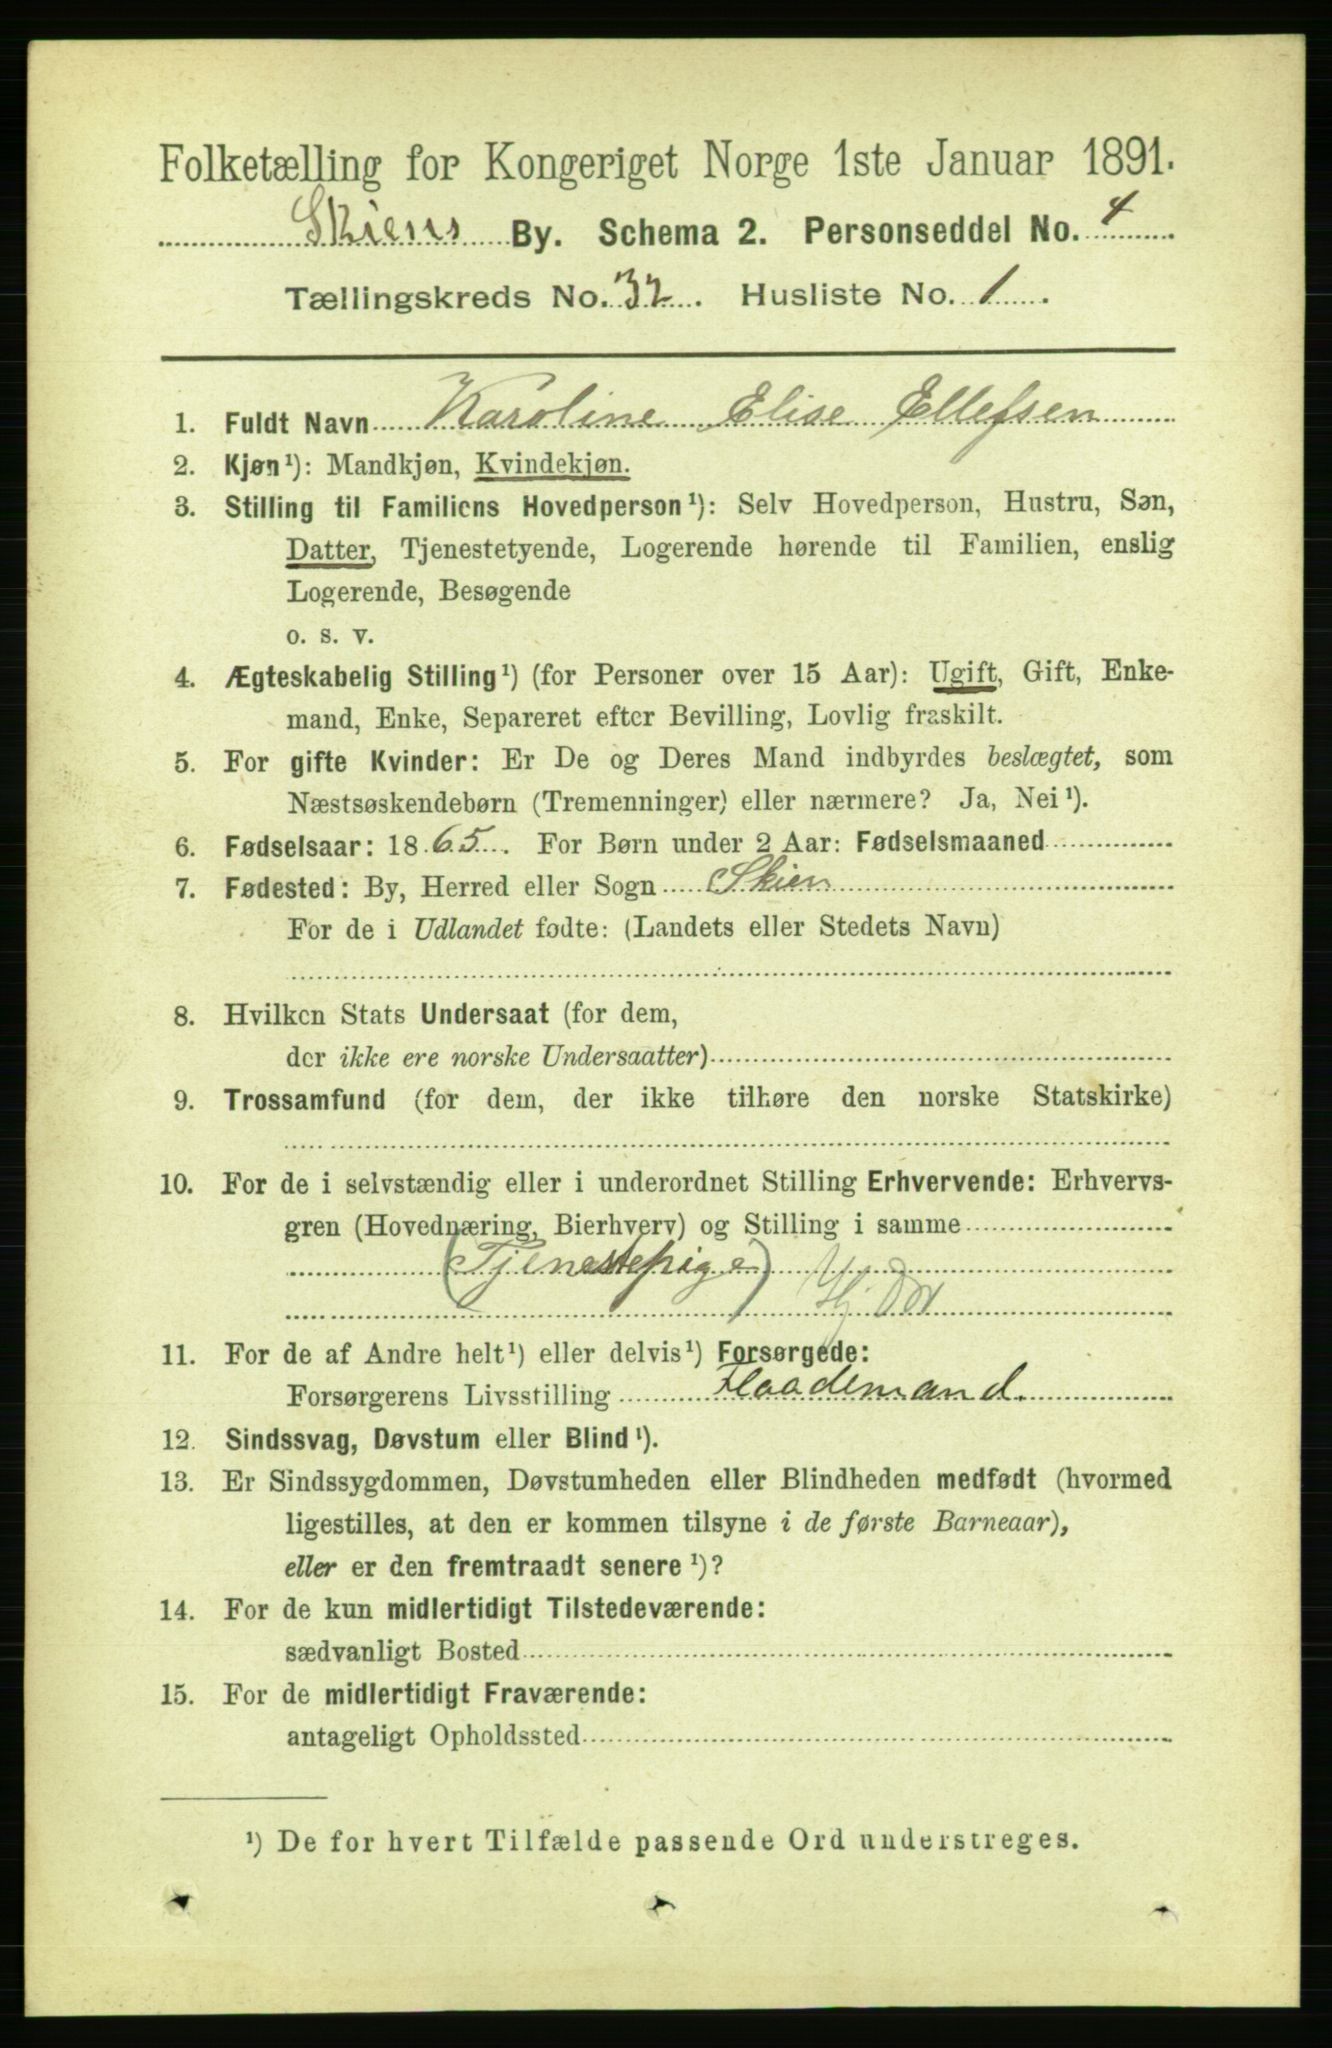 Folketælling for Kongeriget Norge 1ste Januar 1891.
Skiens By. Schema 2. Personseddel No. 4
Tællingskreds No. 32. Husliste No. 1.
1. Fuldt Navn Karoline Elise Ellefsen
2. Kjøn¹): Mandkjøn, Kvindekjøn.
3. Stilling til Familiens Hovedperson¹): Selv Hovedperson, Hustru, Søn,
Datter, Tjenestetyende, Logerende hørende til Familien, enslig
Logerende, Besøgende
o. s. v.
4. Ægteskabelig Stilling¹) (for Personer over 15 Aar): Ugift, Gift, Enke-
mand, Enke, Separeret efter Bevilling, Lovlig fraskilt.
5. For gifte Kvinder: Er De og Deres Mand indbyrdes beslægtet, som
Næstsøskendebørn (Tremenninger) eller nærmere? Ja, Nei¹).
6. Fødselsaar: 1865. For Børn under 2 Aar: Fødselsmaaned
7. Fødested: By, Herred eller Sogn Skien
For de i Udlandet fødte: (Landets eller Stedets Navn)
8. Hvilken Stats Undersaat (for dem,
der ikke ere norske Undersaatter)
9. Trossamfund (for dem, der ikke tilhøre den norske Statskirke)
10. For de i selvstændig eller i underordnet Stilling Erhvervende: Erhvervs-
gren (Hovednæring, Bierhverv) og Stilling i samme
(Tjenestepige)
Hj. Dat
11. For de af Andre helt¹) eller delvis¹) Forsørgede:
Forsørgerens Livsstilling Flaademand.
12. Sindssvag, Døvstum eller Blind¹).
13. Er Sindssygdommen, Døvstumheden eller Blindheden medfødt (hvormed
ligestilles, at den er kommen tilsyne i de første Barneaar),
eller er den fremtraadt senere¹)?
14. For de kun midlertidigt Tilstedeværende:
sædvanligt Bosted
15. For de midlertidigt Fraværende:
antageligt Opholdssted
¹) De for hvert Tilfælde passende Ord understreges.